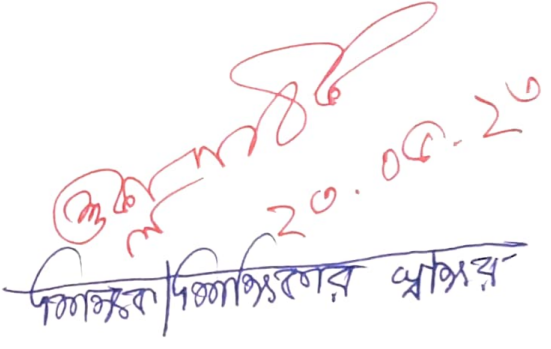 ২০.০৫.২৩
শিক্ষক/শিক্ষিকার স্বাক্ষর